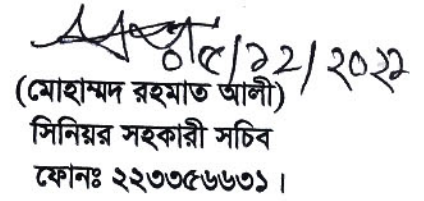 ০৫/১২/২০২১
(মোহাম্মদ রহমাত আলী)
সিনিয়র সহকারী সচিব
ফোনঃ ২২৩৩৫৬৬৩১।